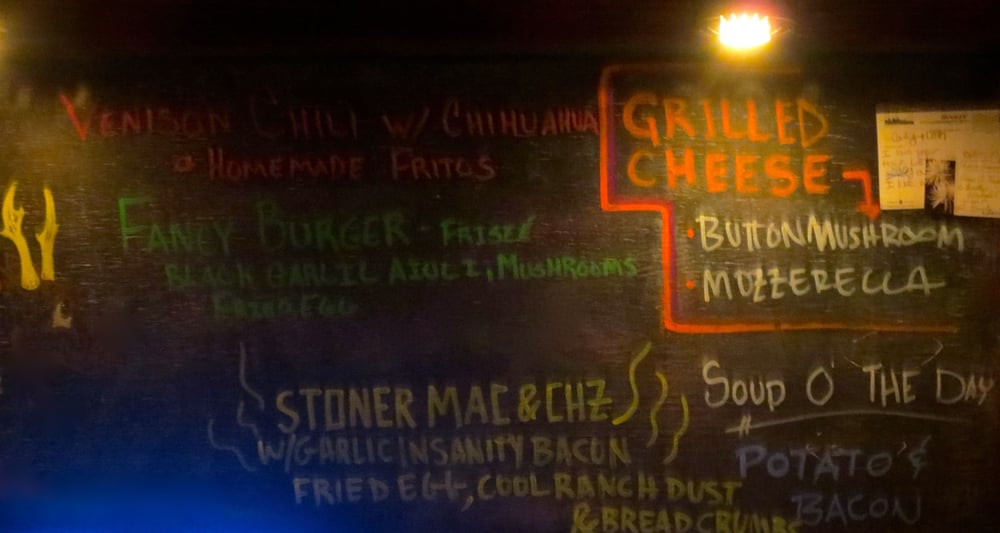 VENISON CHILI W/ CHIHUAHUA
HOMEMADE FRITOS
FANCY BURGER - FRISEE
BLACK GARLIC AIOLI, MUSHROOMS
FRIED EGG
GRILLED
CHEESE
BUTTON MUSHROOM
MOZZERELLA
STONER MAC & CHZ
W/ GARLIC INSANITY BACON
FRIED EGG, COOL RANCH DUST
& BREAD CRUMBS
SOUP O' THE DAY
POTATO &
BACON